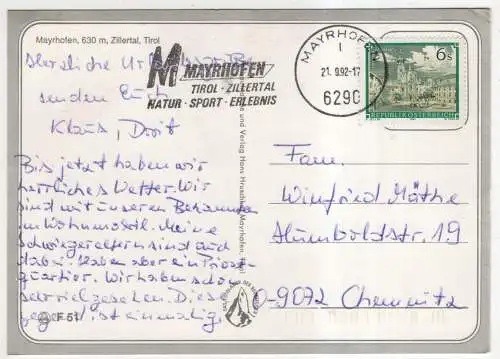 Mayrhofen, 630 m, Zillertal, Tirol
Herzliche
senden Euch
Klaus, Dorit
Bis jetzt haben wir
herrliches Wetter. Wir
sind mit unseren Bekannten
im Wohnmobil. Meine
Schwiegereltern sind auch
dabei haben aber ein Privat-
quartier. Wir haben schon
sehr viel gesehen. Diese
Gegend ist einmalig.
F 51
M MAYRHOFEN
TIROL · ZILLERTAL
NATUR · SPORT · ERLEBNIS
MAYRHOFEN
1
21.9.92-17
6290
6 S
REPUBLIK ÖSTERREICH
und Verlag Hans
Mayrhofen, Tirol
Fam.
Winfried Mäthe
Humboldtstr. 19
O-9072 Chemnitz